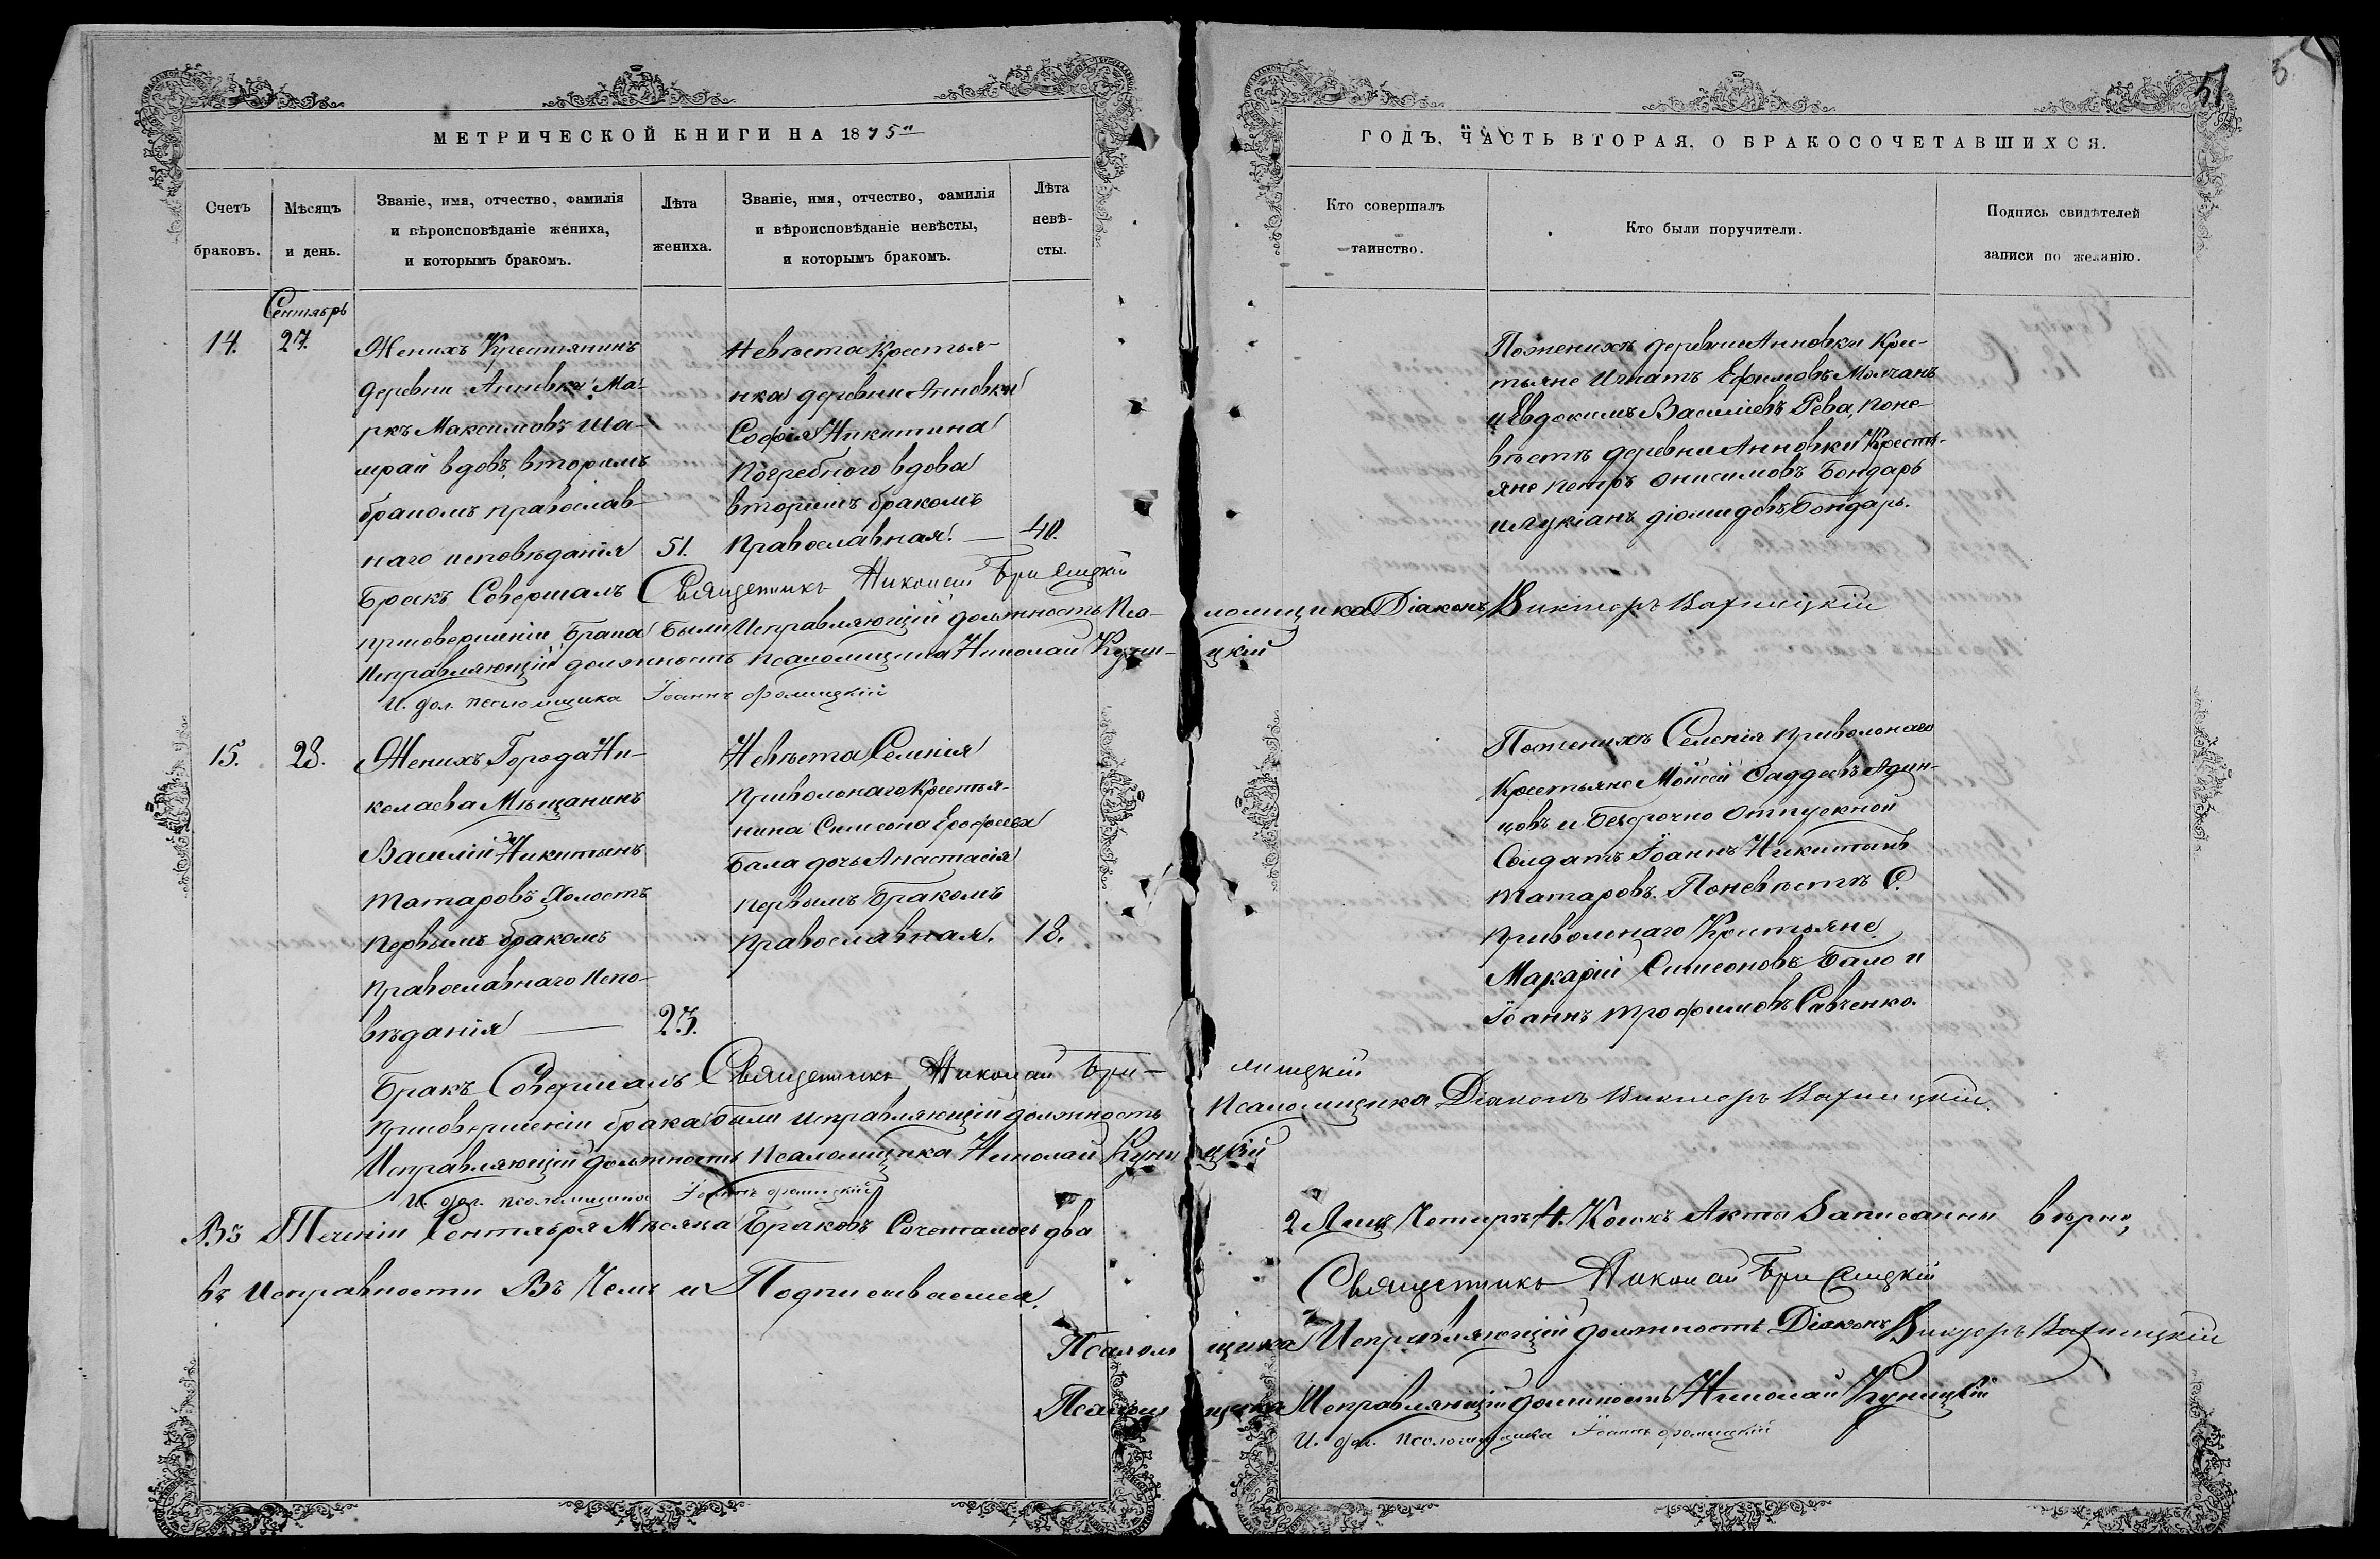 51
МЕТРИЧЕСКОЙ КНИГИ НА 1875"
ГОДЪ, ЧАСТЬ ВТОРАЯ, О БРАКОСОЧЕТАВШИХСЯ.
Счетъ браковъ.
Мѣсяцъ и день.
Званіе, имя, отчество, фамилія
и вѣроисповѣданіе жениха,
и которымъ бракомъ.
Лѣта
жениха.
Званіе, имя, отчество, фамилія
и вѣроисповѣданіе невѣсты,
и которымъ бракомъ.
Лѣта
невѣ-
сты.
Кто совершалъ
таинство.
Кто были поручители.
Подпись свидѣтелей
записи по желанію.
Сентябрь
14.
27.
Женихъ Крестянинъ
деревни Анновки Ма-
ркъ Максимовъ Ша-
мрай вдовъ, вторымъ
бракомъ православ-
наго исповѣданія
51.
Невѣста Крестья-
нка деревни Анновки
Софія Никитина
Погребного вдова
вторымъ бракомъ
Православная. —
40.
По женихѣ деревни Анновки Крес-
тьяне Игнатъ Ефимовъ Молчанъ
и Евдокимъ Василіевъ Рева, по не-
вѣстѣ деревни Анновки Кресть-
яне Петръ Онисимовъ Бондарь
и Лукіанъ Діомидовъ Бондарь.
Бракъ Совершалъ Священникъ Николай
При совершеніи Брака Были Исправляющій должность Пса-
ломщика Діаконъ Викторъ
Исправляющій должность псаломщика Николай Куни-
цкій
И. дол. псаломщика Іоаннъ Фомицкій
15.
28.
Женихъ Города Ни-
колаева Мѣщанинъ
Василій Никитинъ
Татаровъ Холостъ
Первымъ бракомъ
Православнаго Испо-
вѣданія —
23.
Невѣста Селенія
Привольнаго Крестья-
нина Симеона Ерофеева
Бала дочь Анастасія
первымъ Бракомъ
Православная.
18.
По женихѣ Селенія Привольнаго
Крестьяне Мойсей Фаддеевъ Один-
цовъ и Безсрочно Отпускной
Солдатъ Іоаннъ Никитинъ
Татаровъ. По невѣстѣ С.
Привольнаго Крестьяне
Макарій Симеоновъ Бало и
Іоаннъ Трофимовъ Савченко.
Бракъ Совершалъ Священникъ Николай
При совершеніи брака были исправляющій должность
Псаломщика Діаконъ Викторъ
Исправляющій должность Псаломщика Николай Куни
цкій
И. дол. псаломщика Іоаннъ Фомицкій
Въ Теченіи Сентября Мѣсяца Браковъ Сочеталось два
2 Лицъ Четыре 4. Коихъ Акты Записанны вѣрно,
въ Исправности Въ Чемъ и Подписываемся.
Священникъ Николай
Псалом щика Исправляющій должность Діаконъ Викторъ
Псалом щика Исправляющій должность Николай Куницкій
И. дол. псаломщика Іоаннъ Фомицкій